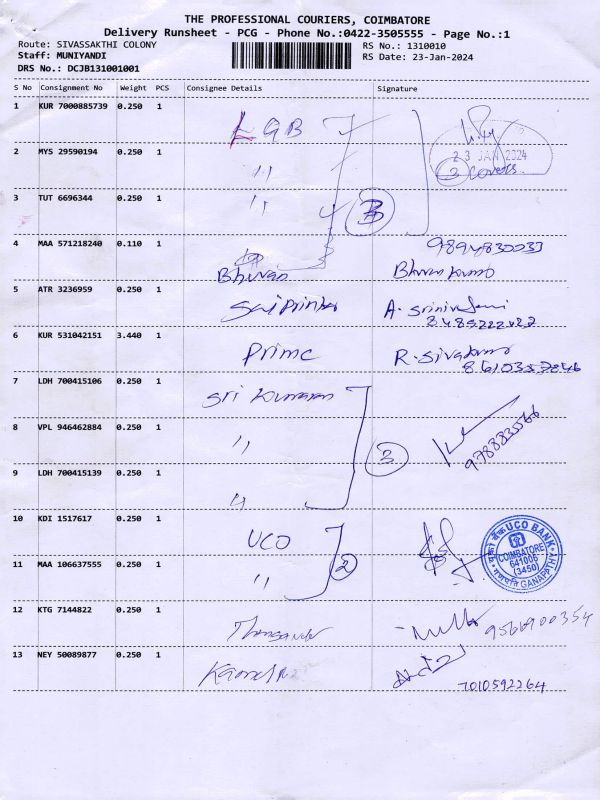 THE PROFESSIONAL COURIERS, COIMBATORE
Delivery Runsheet - PCG - Phone No.:0422-3505555 - Page No.:1
Route: SIVASSAKTHI COLONY
RS No.: 1310010
Staff: MUNIYANDI
RS Date: 23-Jan-2024
DRS No.: DCJB131001001
S No Consignment No Weight PCS Consignee Details Signature
1 KUR 7000885739 0.250 1 LGB
23 JAN 2024
2 MYS 29590194 0.250 1 "
3 covers
3 TUT 6696344 0.250 1 " 3
4 MAA 571218240 0.110 1 9894830033
Bhuvan
5 ATR 3236959 0.250 1 Sai Printers A. Srinivasani
6 KUR 531042151 3.440 1 Prime R. Sivakumar
8610357846
7 LDH 700415106 0.250 1 Sri Kumaran
8 VPL 946462884 0.250 1 " 3
9 LDH 700415139 0.250 1 "
10 KDI 1517617 0.250 1 UCO
UCO BANK
COIMBATORE
641006
(3450)
GANAPATHY
11 MAA 106637555 0.250 1 " 2
12 KTG 7144822 0.250 1 9566900354
13 NEY 50089877 0.250 1
7010592264